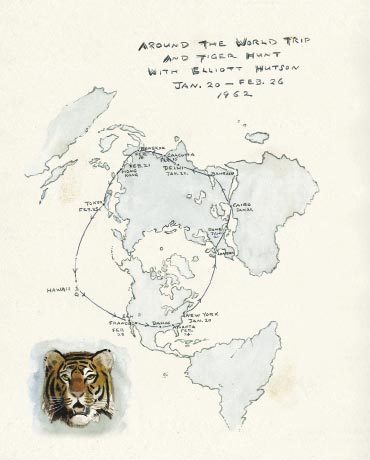 AROUND THE WORLD TRIP
AND TIGER HUNT
WITH ELLIOTT HUTSON
JAN. 20 – FEB. 26
1962
BANGKOK
FEB.
CALCUTTA
FEB.
FEB. 21
HONG
KONG
DELHI
JAN. 25
BAHREIN
TOKYO
FEB. 25
CAIRO
JAN. 23
ROME
JAN.
LONDON
HAWAII
SAN
FRANCISCO
FEB.
DALLAS
NEW YORK
JAN. 20
ATLANTA
FEB.